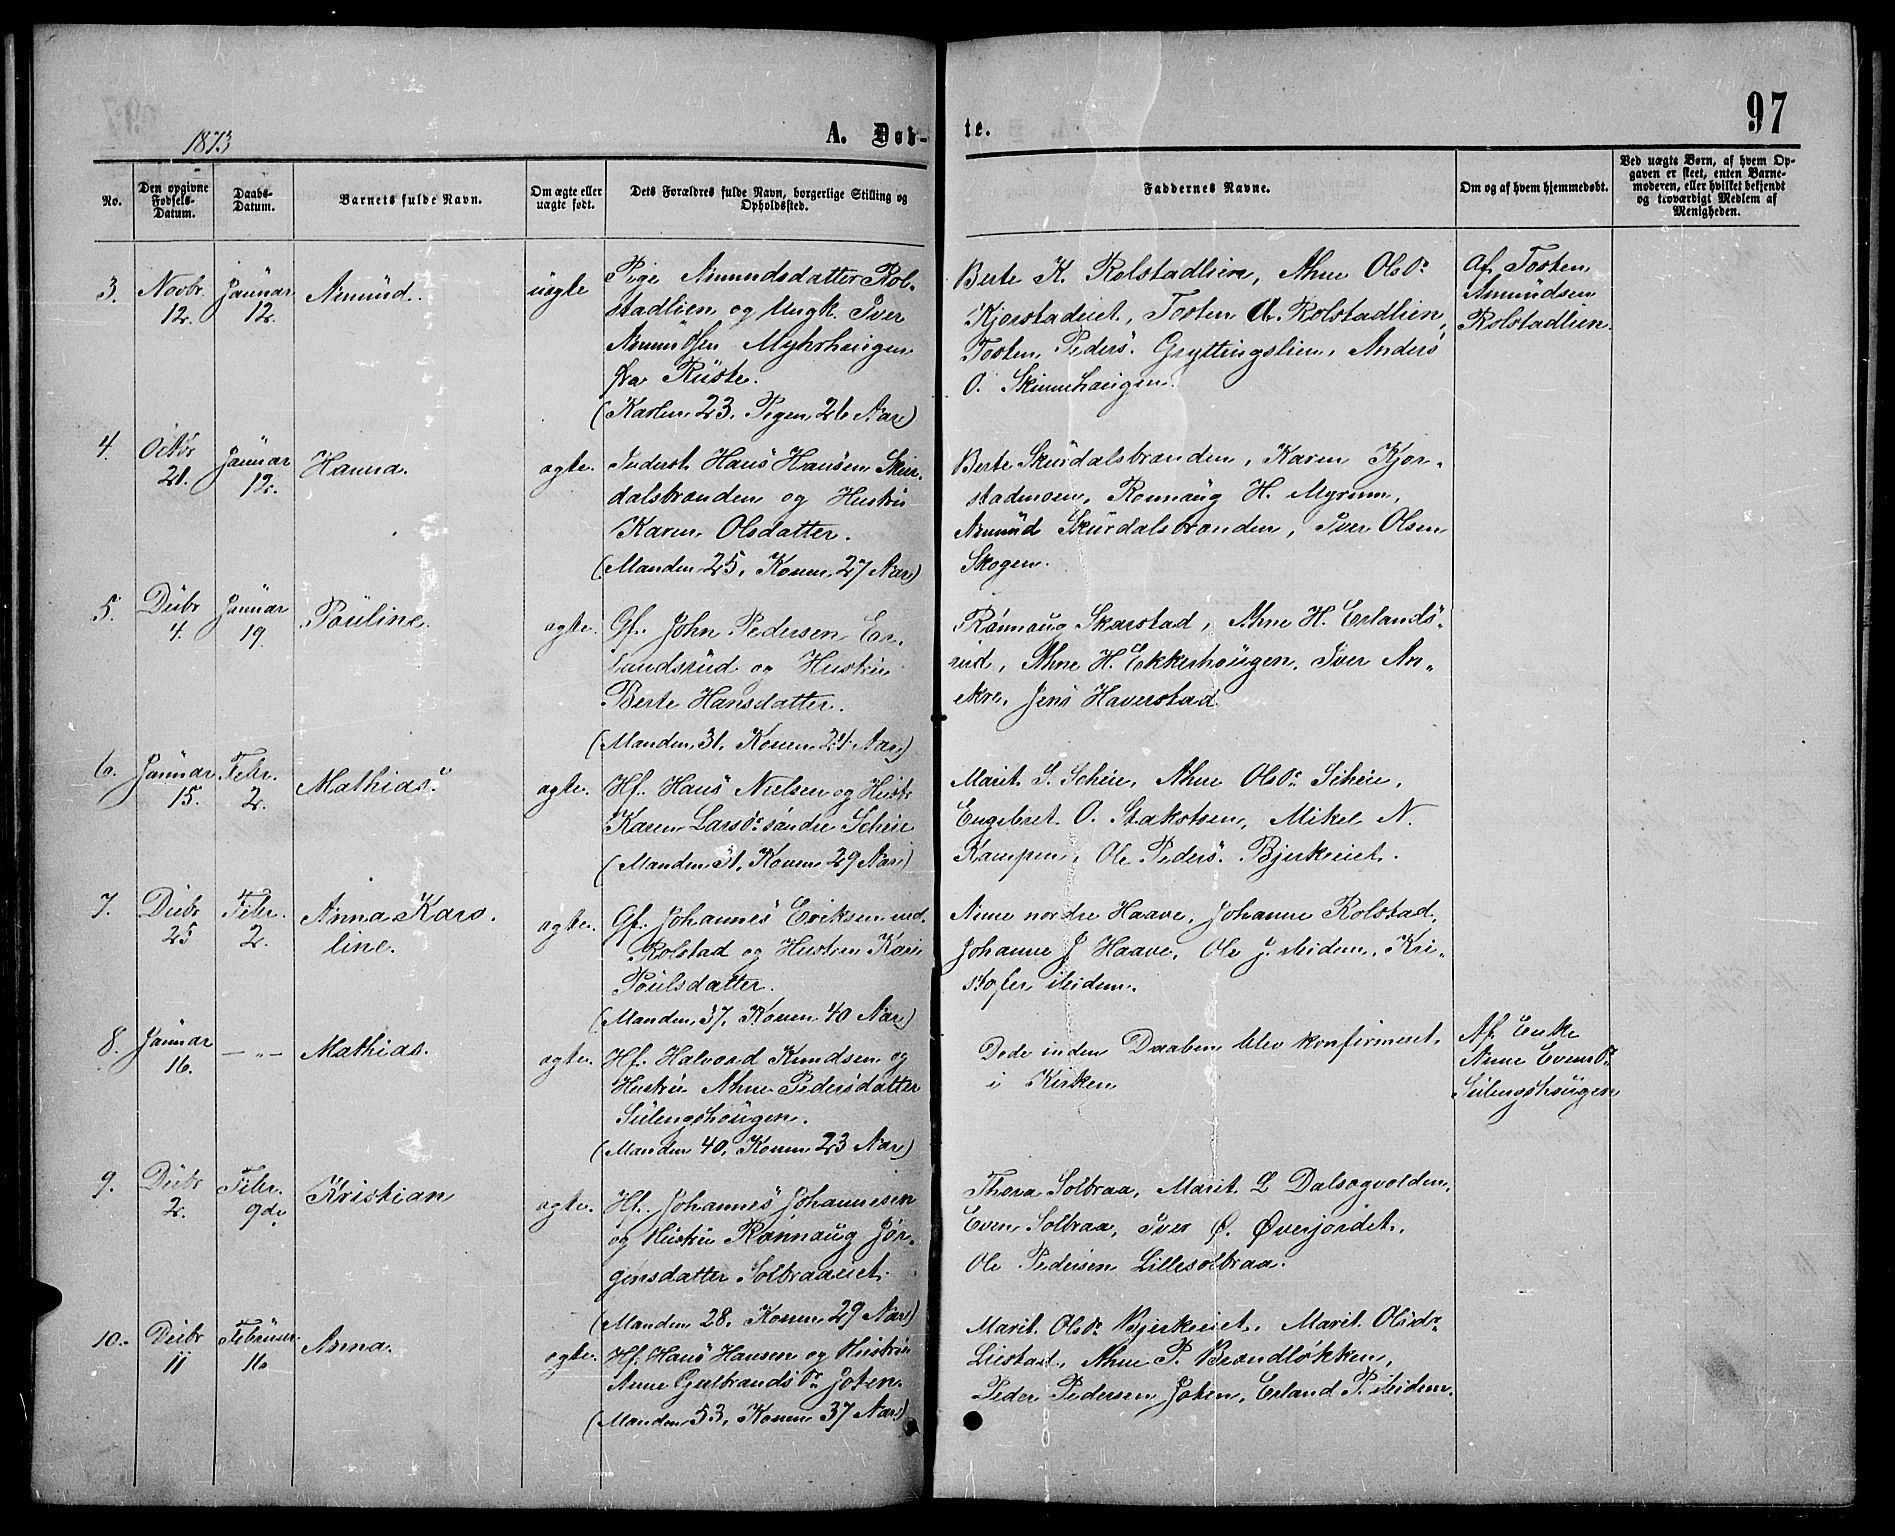 97
1873
A. Døb-
te.
No.
Den opgivne Fødsels-Datum.
Daabs-Datum.
Barnets fulde Navn.
Om ægte eller uægte født.
Dets Forældres fulde Navn, borgerlige Stilling og Opholdssted.
Faddernes Navne.
Om og af hvem hjemmedøbt.
Ved uægte Børn, af hvem Op-
gaven er skeet, enten Barne-
moderen, eller hvilket bekjendt
og troværdigt Medlem af
Menigheden.
3.
Novbr
12.
Januar
12.
Amund.
uegte
Pige Amundsdatter Rol-
stadlien og Ungk. Iver
Amundsen Myhrhaugen
fra Ruste.
(Karlen 23, Pigen 26 Aar)
Berte K. Rolstadlien, Ahne Olsdr
Kjorstadeiet, Tosten A. Rolstadlien,
Tosten Peders. Gryttingslien, Anders
O. Skinnehaugen.
Af Tosten
Amundsen
Rolstadlien.
4.
Octbr
21.
Januar
12.
Hanna.
ægte.
Inderst Hans Hansen Skur-
dalsbranden og Hustru
Karen Olsdatter.
(Manden 25, Konen 27 Aar)
Berte Skurdalsbranden, Karen Kjor-
stadmoen, Rønnaug H. Myrum,
Amund Skurdalsbranden, Iver Olsen
Skogen.
5.
Debr
4.
Januar
19.
Pouline.
ægte.
Gf. John Pedersen Er-
landsrud og Hustru
Berte Hansdatter.
(Manden 31, Konen 24 Aar)
Rønnaug Skarstad, Ahne H. Erlands-
rud, Ahne H. Ekkerhougen, Iver An-
ekre, Jens Haverstad.
6.
Januar
15.
Febr.
2.
Mathias.
ægte.
Hf. Hans Nielsen og Hustr
Karen Larsdr søndre Scheie
(Manden 31, Konen 29 Aar)
Marit I. Scheie, Ahne Olsdr Scheie,
Engebret O. Stakstsen, Mikel N.
Kampen, Ole Peders. Bjerkeiet.
7.
Debr
25
Febr.
2.
Anna Karo-
line.
ægte.
Gf. Johannes Eriksen ned.
Rolstad og Hustru Kari
Poulsdatter.
(Manden 37, Konen 40 Aar)
Anne nordre Haave, Johanne Rolstad,
Johanne J Haave, Ole J. Meidem, Kri-
stofer Meidem.
8.
Januar
16.
— „ —
Mathias.
ægte.
Hf. Halvord Knudsen og
Hustru Ahne Pedersdatter
Sulengshougen.
(Manden 40, Konen 23 Aar)
Døde inden Daaben blev konfirmeret
i Kirken
Af Enke
Anne Evensdr
Sulengshougen
9.
Debr
2.
Febr.
9de
Kristian
ægte.
Hf. Johannes Johannesen
og Hustru Rønnaug Jør-
gensdatter Solbraaeiet.
(Manden 28, Konen 29 Aar)
Thora Solbraa, Marit L Dalsegvolden,
Even Solbraa, Iver Ø. Øverjordet,
Ole Pedersen Lillesolbraa.
10.
Debr
11
Februar
16
Anna.
ægte.
Hf. Hans Hansen og Hustru
Anne Gulbrandsdr Joten.
(Manden 53, Konen 37 Aar)
Marit Olsdr Bjerkeiet, Marit Olsdr
Liestad, Ahne P. Brændløkken,
Peder Pedersen Joten, Erland P. Meidem.